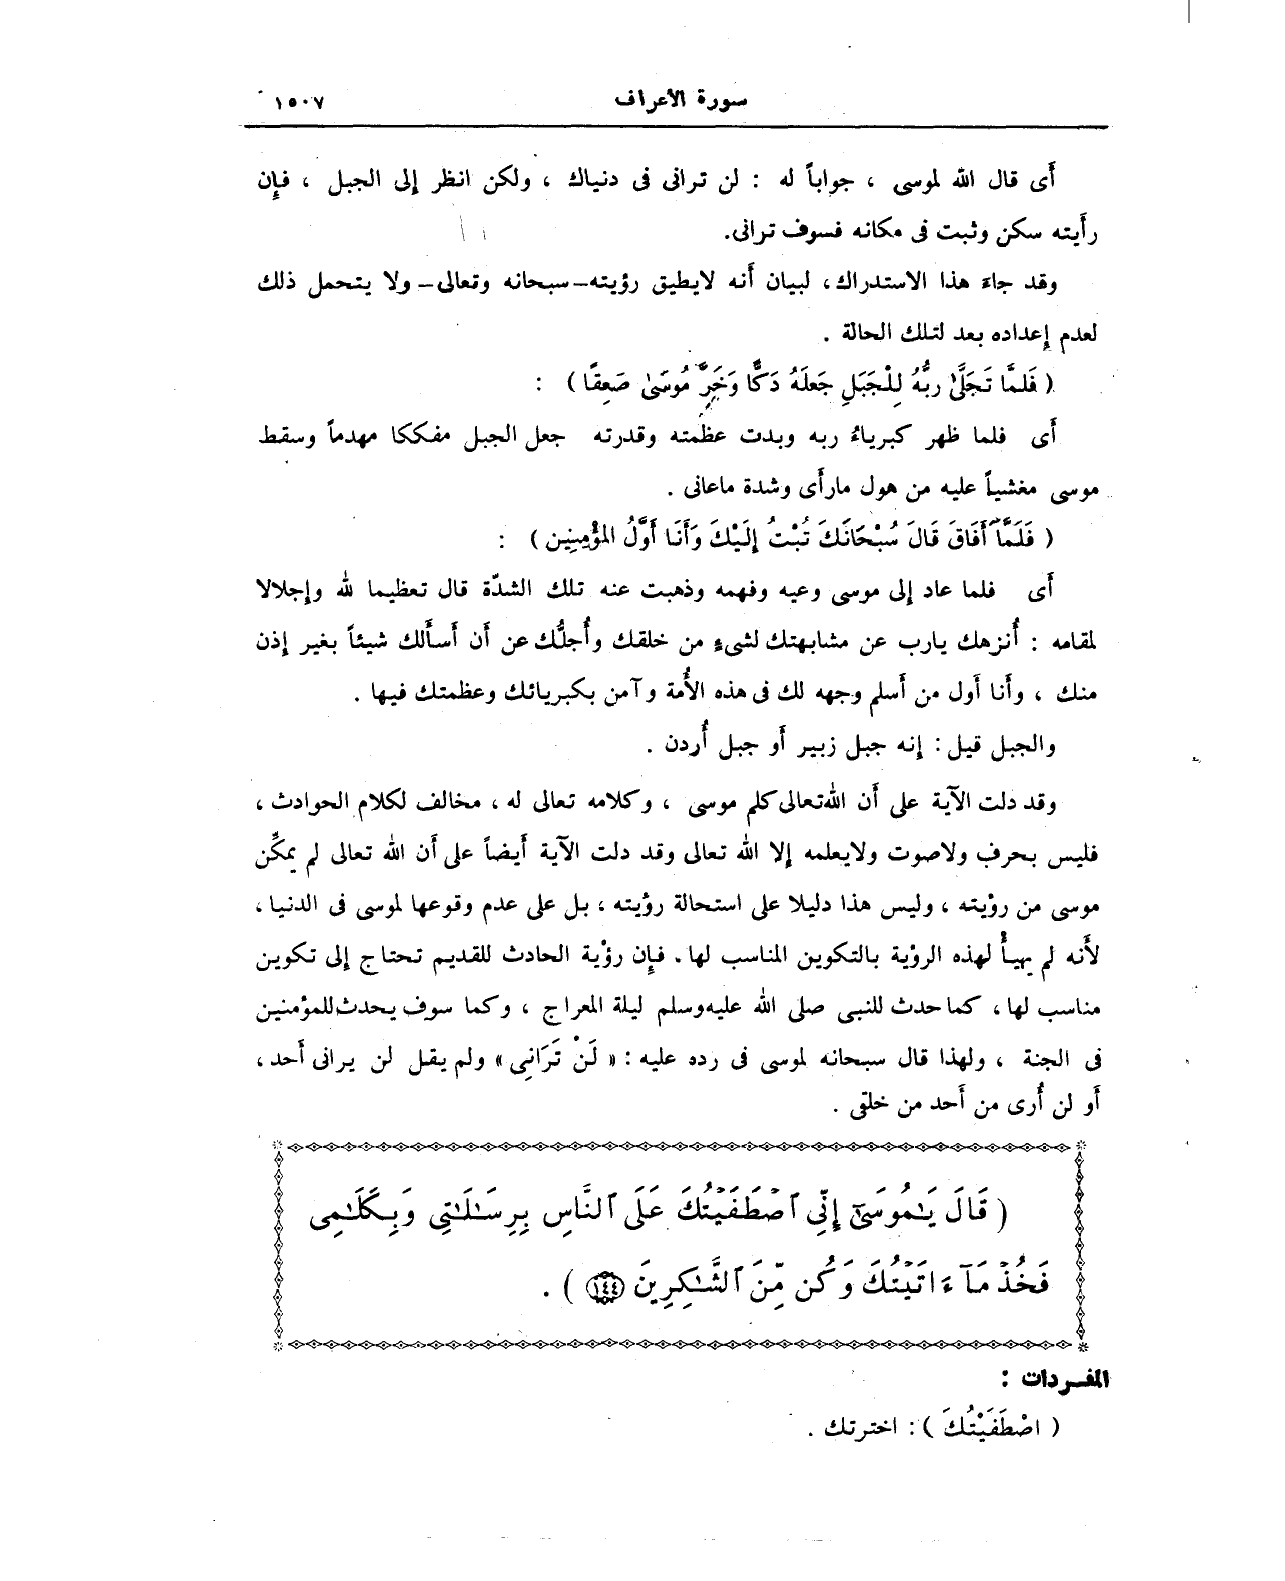 سورة الأعراف ١٥٠٧
أَى قال الله لموسى ، جواباً له : لن ترانى فى دنياك ، ولكن انظر إلى الجبل ، فإن
رأَيته سكن وثبت فى مكانه فسوف ترانى.
وقد جاءَ هذا الاستدراك، لبيان أَنه لايطيق رؤيته–سبحانه وتعالى– ولا يتحمل ذلك
لعدم إعداده بعد لتلك الحالة .
( فَلَمَّا تَجَلَّىٰ رَبُّهُ لِلْجَبَلِ جَعَلَهُ دَكًّا وَخَرَّ مُوسَىٰ صَعِقًا ) :
أَى فلما ظهر كبرياءُ ربه وبدت عظمته وقدرته جعل الجبل مفككا مهدماً وسقط
موسى مغشياً عليه من هول مارأَى وشدة ماعانى .
( فَلَمَّآ أَفَاقَ قَالَ سُبْحَانَكَ تُبْتُ إِلَيْكَ وَأَنَا أَوَّلُ المُؤْمِنِين ) :
أَى فلما عاد إلى موسى وعيه وفهمه وذهبت عنه تلك الشدّة قال تعظيما لله وإجلالا
لمقامه : أُنزهك يارب عن مشابهتك لشىءٍ من خلقك وأُجلُّك عن أَن أَسأَلك شيئاً بغير إذن
منك ، وأَنا أَول من أَسلم وجهه لك فى هذه الأُمة وآمن بكبريائك وعظمتك فيها .
والجبل قيل : إنه جبل زبير أَو جبل أُردن .
وقد دلت الآية على أَن الله تعالى كلم موسى ، وكلامه تعالى له ، مخالف لكلام الحوادث ،
فليس بحرف ولاصوت ولايعلمه إلا الله تعالى وقد دلت الآية أَيضاً على أَن الله تعالى لم يمكِّن
موسى من رؤيته ، وليس هذا دليلا على استحالة رؤيته ، بل على عدم وقوعها لموسى فى الدنيا ،
لأَنه لم يهيأْ لهذه الرؤية بالتكوين المناسب لها. فإن رؤْية الحادث للقديم تحتاج إلى تكوين
مناسب لها ، كما حدث للنبى صلى الله عليه وسلم ليلة المعراج ، وكما سوف يحدث للمؤمنين
فى الجنة ، ولهذا قال سبحانه لموسى فى رده عليه : « لَنْ تَرَانِي » ولم يقل لن يرانى أَحد ،
أَو لن أُرى من أَحد من خلقى .
( قَالَ يَـٰمُوسَىٰٓ إِنِّى ٱصْطَفَيْتُكَ عَلَى ٱلنَّاسِ بِرِسَـٰلَـٰتِى وَبِكَلَـٰمِى
فَخُذْ مَآ ءَاتَيْتُكَ وَكُن مِّنَ ٱلشَّـٰكِرِينَ ١٤٤ ) .
المفردات :
( اصْطَفَيْتُكَ ) : اخترتك .